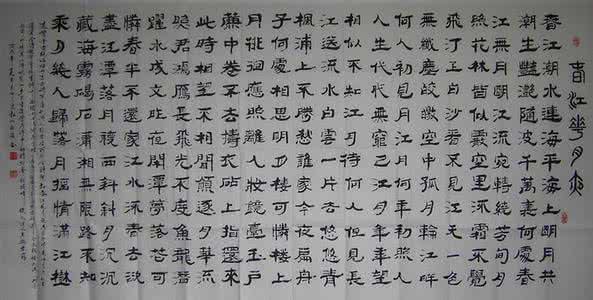 春江花月夜
春江潮水連海平海上明月共
潮生灩灩隨波千萬裏何處春
江無月明江流宛轉繞芳甸月
照花林皆似霰空里流霜不覺
飛汀上白沙看不見江天一色
無纖塵皎皎空中孤月輪江畔
何人初見月江月何年初照人
人生代代無窮已江月年年望
相似不知江月待何人但見長
江送流水白雲一片去悠悠青
楓浦上不勝愁誰家今夜扁舟
子何處相思明月樓可憐樓上
月徘徊應照離人妝鏡臺玉戶
簾中卷不去擣衣砧上拂還來
此時相望不相聞願逐月華流
照君鴻雁長飛光不度魚龍潛
躍水成文昨夜閑潭夢落花可
憐春半不還家江水流春去欲
盡江潭落月復西斜斜月沉沉
藏海霧碣石瀟湘無限路不知
乘月幾人歸落月搖情滿江樹